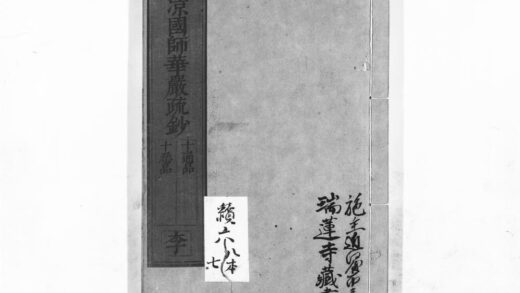 涼國師華嚴疏鈔
十通品
十忍品
李
續六
八本
七
施主
瑞蓮寺藏